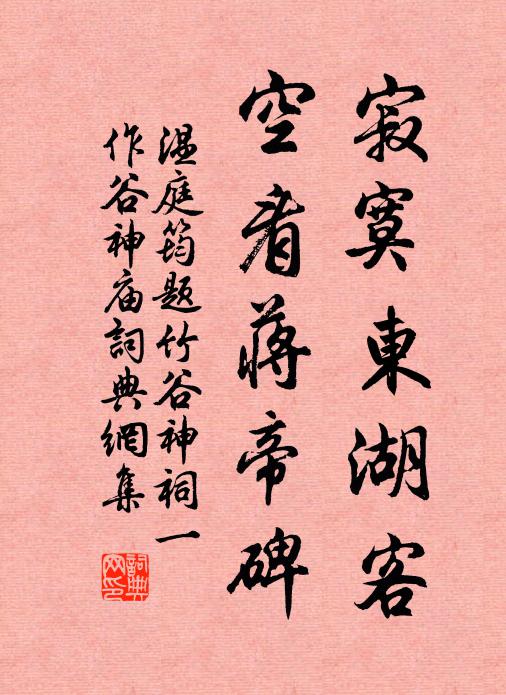 寂寞東湖客
空看蔣帝碑
溫庭筠題竹谷神祠一
作谷神庙詞典網集
詞典网印